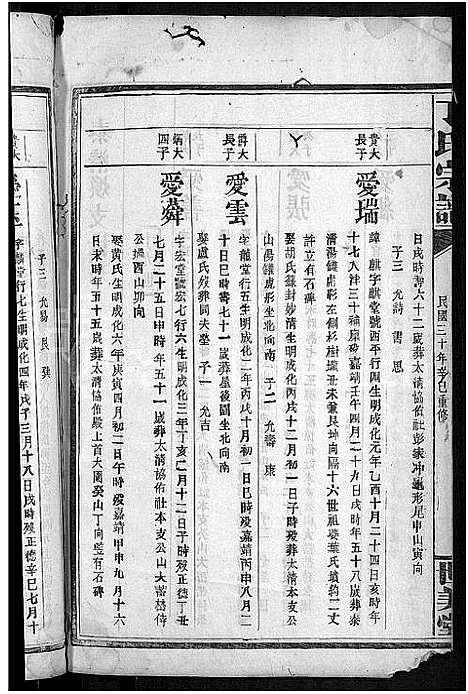 丁氏宗譜
民國三十年辛巳重修
世美堂
日戌時壽六十二歲葬太清協佑社彭家冲龜形尾申山寅向
子三 允詩 書 思
貴大長子
愛瑞
諱 麒字麒堂號西平行四生明成化元年乙酉十月二十四日亥時年
十七入泮三十補廩歿嘉靖壬午四月二十九日戌時年五十八歲葬泰
清湯
許立有石碑
娶胡氏錄封妙清生明成化丙戌十二月
歿葬太清本支公
山湯
虎形坐北向南 子二 允壽 康
諱大長子
愛雲
字龍堂行五生明成化二年丙戌十月初一日巳時歿嘉靖丙申八月二
十日巳時壽七十一歲葬屋後園坐北向南
娶盧氏歿葬同夫塋 子一 允吉
炳大四子
愛蕣
字宏堂號宏七行六生明成化三年丁亥二月十二日子時歿正德丁丑
七月二十五日申時年五十一歲葬太清協佑社本支公山大
公
酉山卯向
娶黃氏生明成化六年庚寅四月初二日午時歿嘉靖甲申九月十六
日未時年五十五歲葬太清協佑殿上首大園癸山丁向塋有石碑
子三 允易 良 巽
貴大
字麟堂行七生明成化四年戊子三月十八日戌時歿正德辛巳七月十